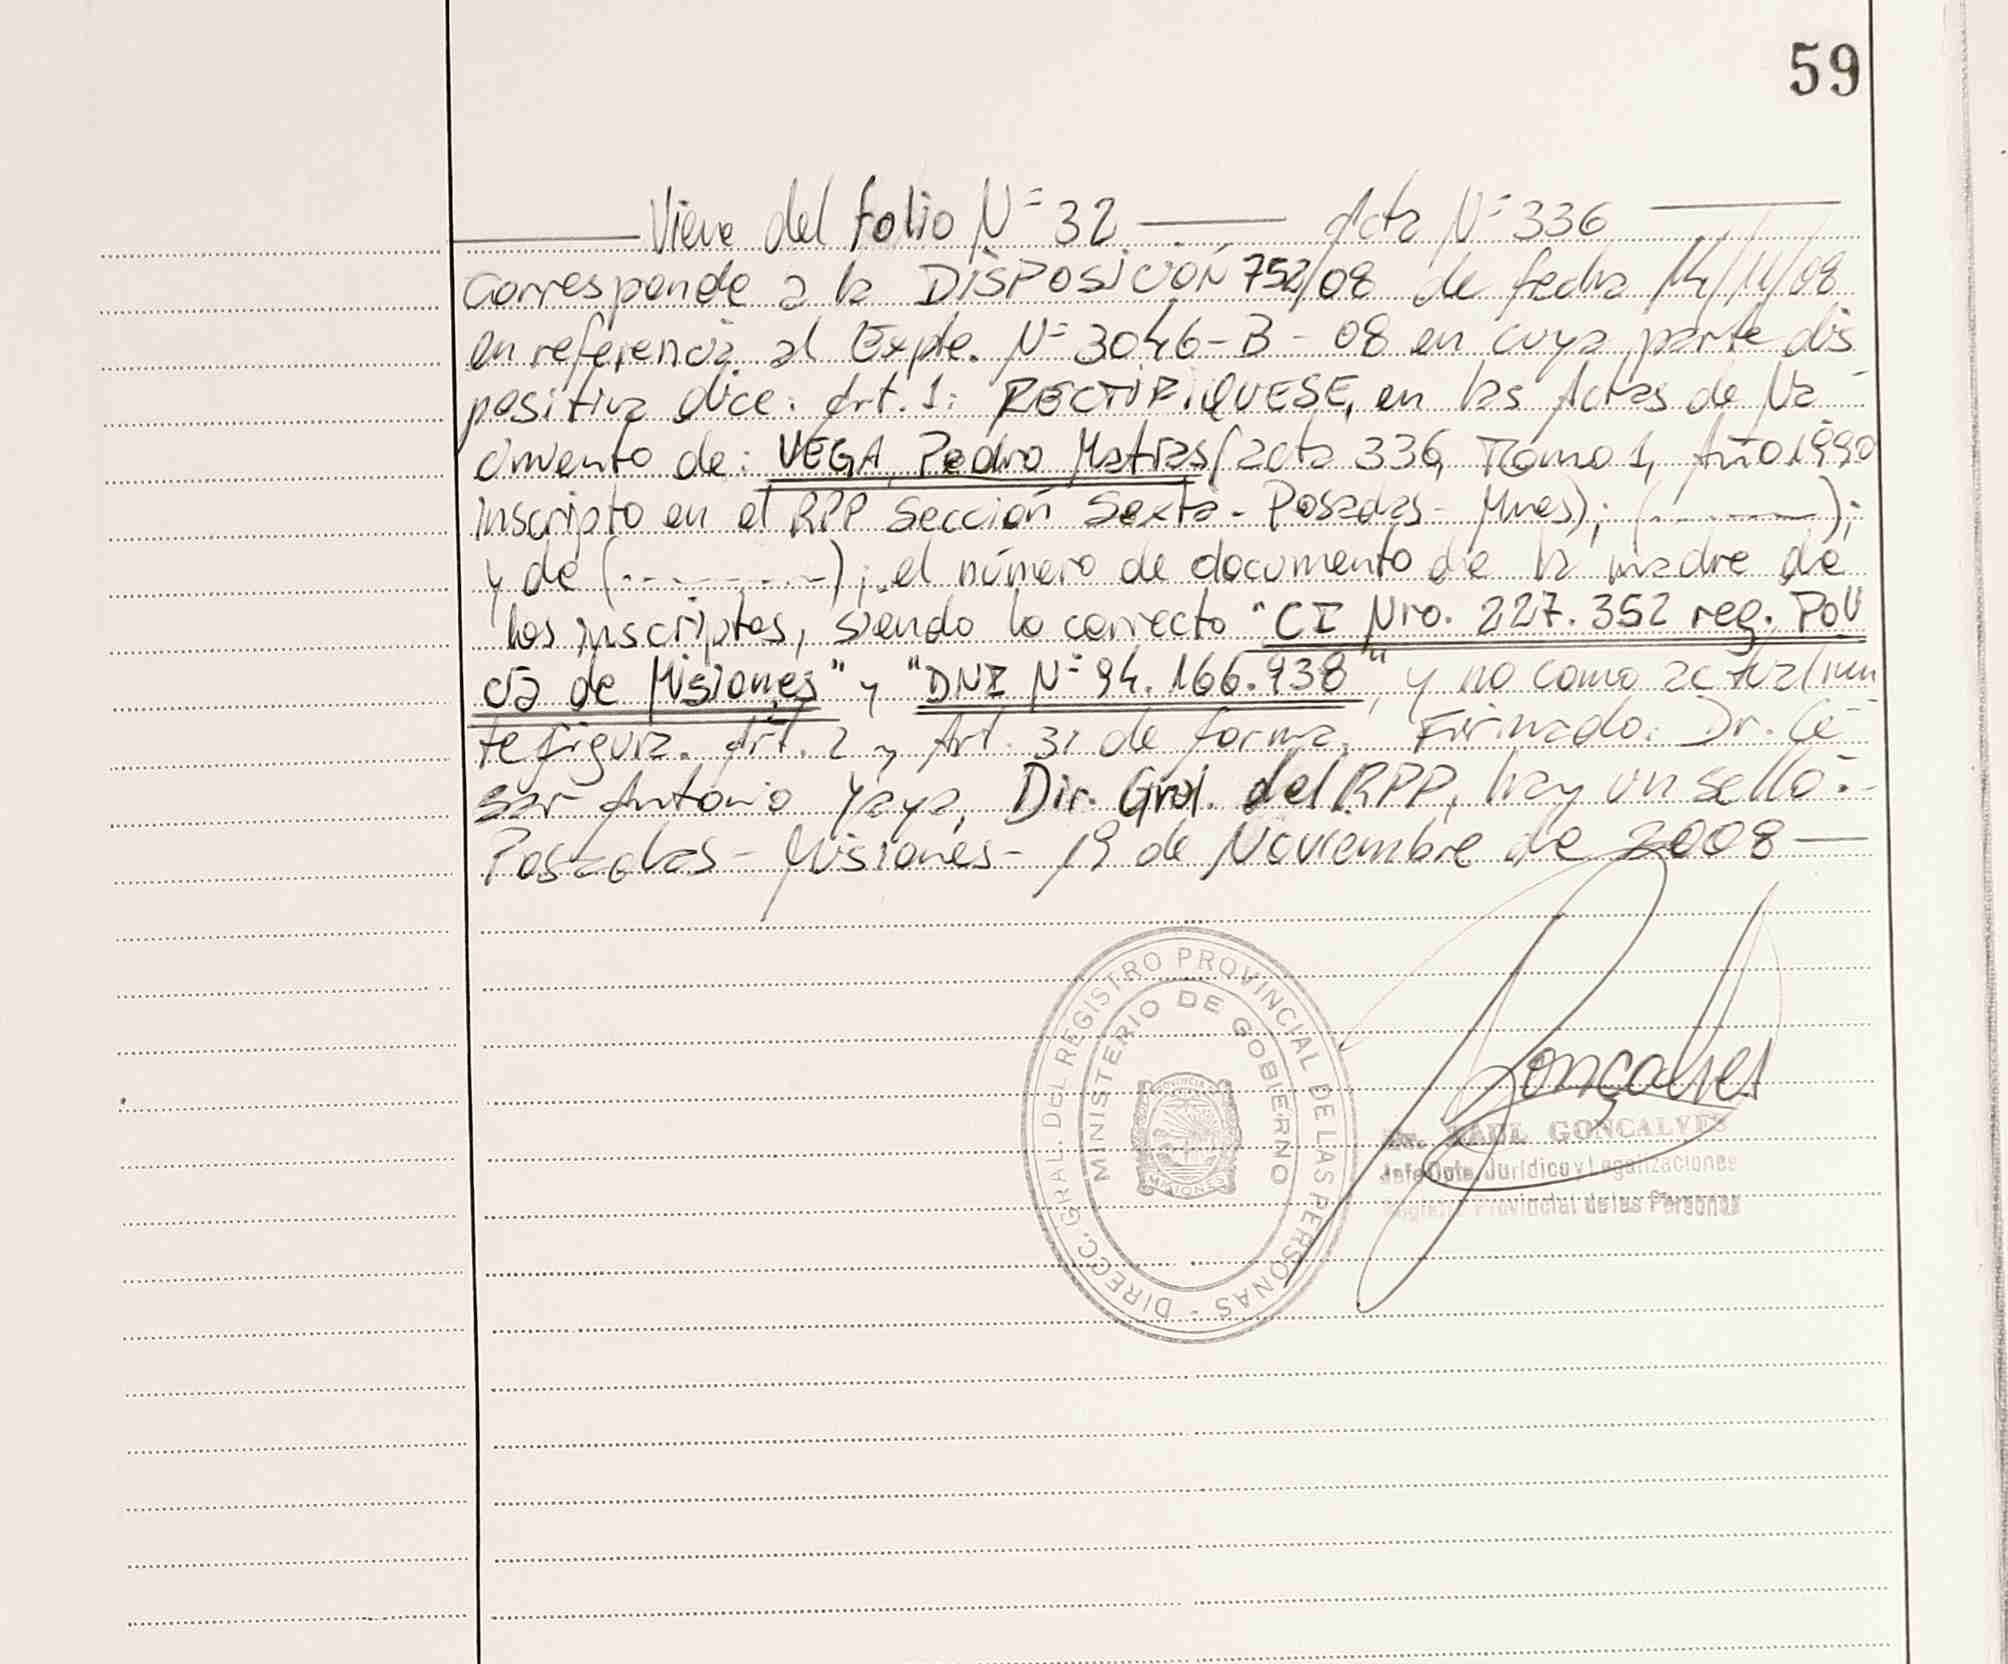 59
Viene del folio N= 32 —— Acta N= 336 ——
Corresponde a la DISPOSICIÓN 752/08 de fecha 14/11/08
en referencia al Expte. N= 3046-B-08 en cuya parte dis
positiva dice: Art. 1: RECTIFIQUESE, en las Actas de Na-
cimiento de: VEGA, Pedro Matias (acta 336, Tomo 1, Año 1990
inscripto en el RPP Sección Sexta - Posadas - Mnes); (--------);
y de (---------); el número de documento de la madre de
los inscriptos, siendo lo correcto "CI Nro. 227.352 reg. Poli
cia de Misiones" y "DNI N= 94.166.938", y no como actualmen
te figura. Art. 2 y Art. 3: de forma. Firmado: Dr. Cé-
sar Antonio Yaya, Dir. Gral. del RPP, hay un sello:-
Posadas - Misiones - 19 de Noviembre de 2008 —
DIRECC. GRAL. DEL REGISTRO PROVINCIAL DE LAS PERSONAS -
MINISTERIO DE GOBIERNO
PROVINCIA
MISIONES
Gonçalves
Dr. RAUL GONCALVES
Jefe Dpto. Jurídico y Legalizaciones
Registro Provincial de las Personas